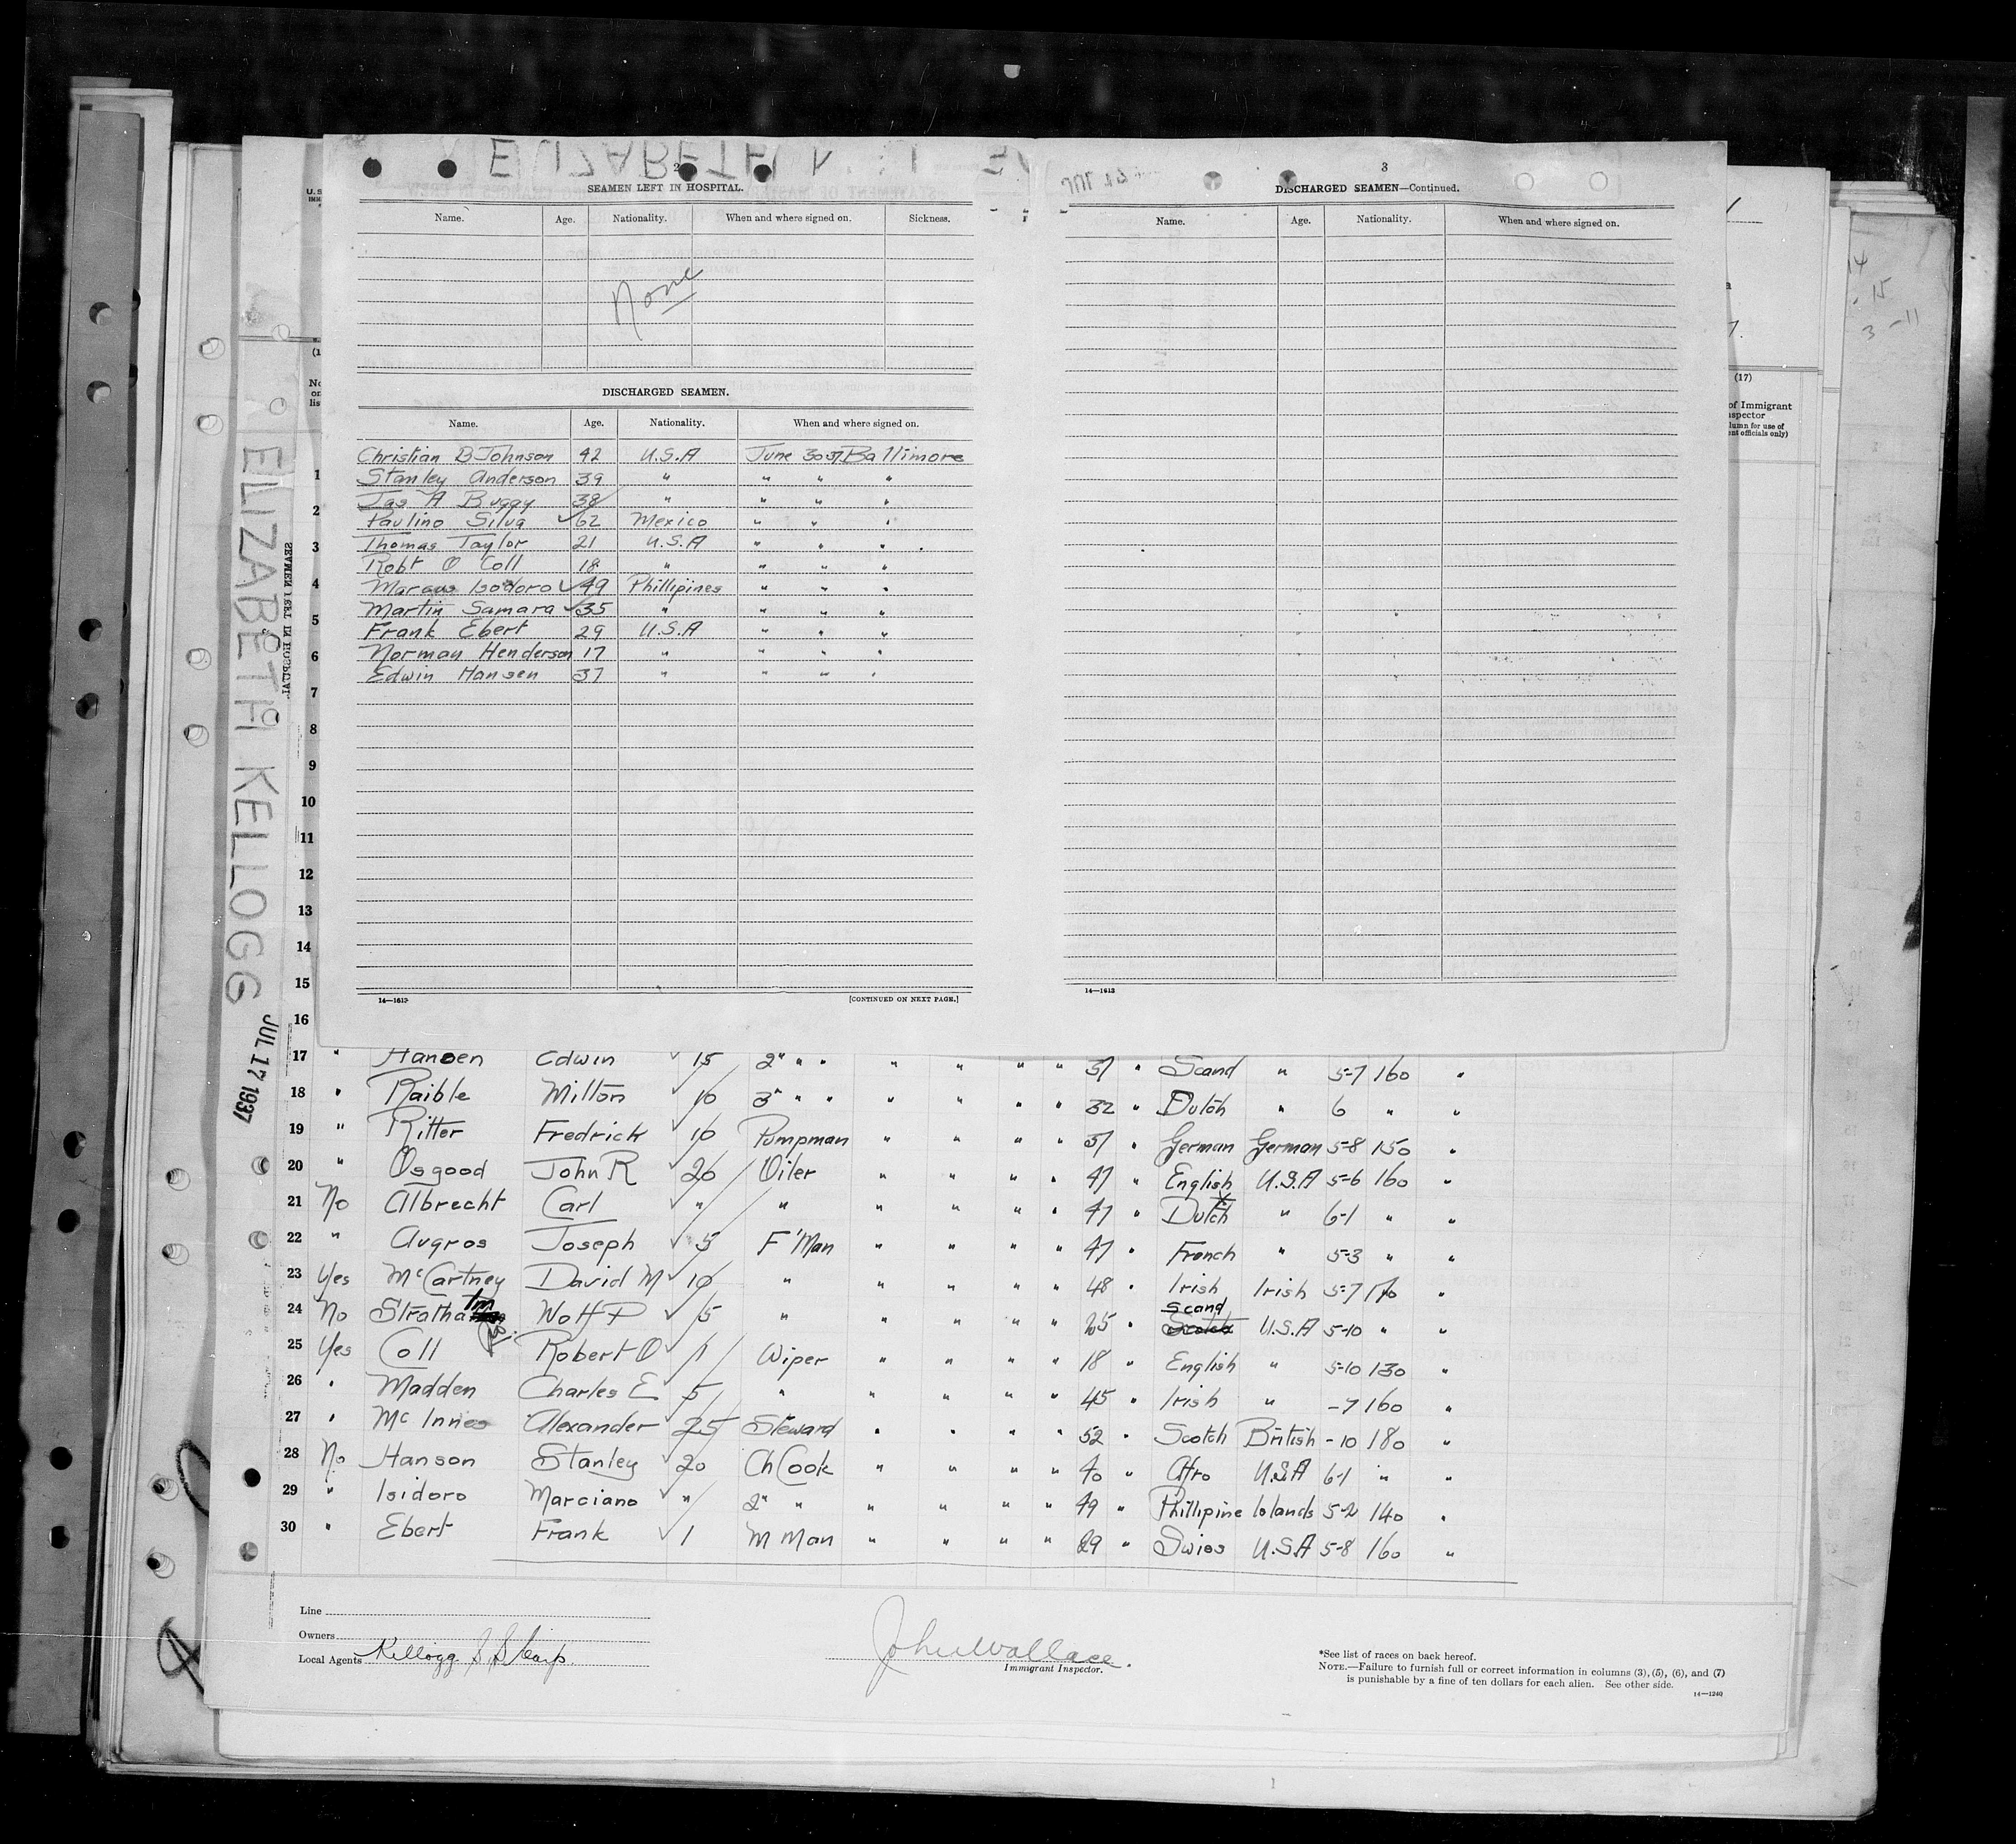 2
SEAMEN LEFT IN HOSPITAL.
Name. Age. Nationality. When and where signed on. Sickness.
None
DISCHARGED SEAMEN.
Name. Age. Nationality. When and where signed on.
Christian B Johnson 42 U.S.A June 30 37 Baltimore
Stanley Anderson 39 " " " "
Jas A Buggy 38 " " " "
Paulino Silva ✓ 62 Mexico " " "
Thomas Taylor 21 U.S.A " " "
Robt O Coll 18 " " " "
Marcus Isodoro ✓ 49 Phillipines " " "
Martin Samara ✓ 35 " " " "
Frank Ebert 29 U.S.A " " "
Norman Henderson 17 " " " "
Edwin Hansen 37 " " " "
14—1613 [CONTINUED ON NEXT PAGE.]
3
DISCHARGED SEAMEN—Continued.
Name. Age. Nationality. When and where signed on.
14—1613
(17)
of Immigrant
Inspector
ELIZABETH KELLOGG
JUL 17 1937
SEAMEN LEFT IN HOSPITAL.
14
15
3 -11
1
2
3
4
5
6
7
8
9
10
11
12
13
14
15
16
17 " Hansen Edwin ✓ 15 2" " " " " " " 37 " Scand " 5-7 160 "
18 " Raible Milton ✓ 10 3" " " " " " " 32 " Dutch " 6 " "
19 " Ritter Fredrick ✓ 10 Pumpman " " " " 37 " German German 5-8 150 "
20 " Osgood John R ✓ 20 Oiler " " " " 47 " English U.S.A 5-6 160 "
21 No Albrecht Carl ✓ " " " " " " 47 " Dutch " 6-1 " "
22 " Augros Joseph ✓ 5 F'Man " " " " 47 " French " 5-3 " "
23 Yes McCartney David M ✓ 10 " " " " " 48 " Irish Irish 5-7 170 "
24 No Stratha ✓ 5 " " " " " " Scand U.S.A 5-10 " "
25 Yes Coll Robert O ✓ 1 Wiper " " " " 18 " English " 5-10 130 "
26 " Madden Charles E ✓ 5 " " " " " 45 " Irish " -7 160 "
27 " McInnes Alexander ✓ 25 Steward " " " " 52 " Scotch British -10 180 "
28 No Hanson Stanley ✓ 20 Ch Cook " " " " 40 " Afro U.S.A 6-1 " "
29 " Isidoro Marciano ✓ " 2" " " " " " 49 " Phillipine Islands 5-2 140 "
30 " Ebert Frank ✓ 1 M Man " " " " 29 " Swiss U.S.A 5-8 160 "
Line
Owners
Local Agents Kellogg S.S.
John Wallace.
Immigrant Inspector.
*See list of races on back hereof.
NOTE.—Failure to furnish full or correct information in columns (3), (5), (6), and (7)
is punishable by a fine of ten dollars for each alien. See other side.
14—1240